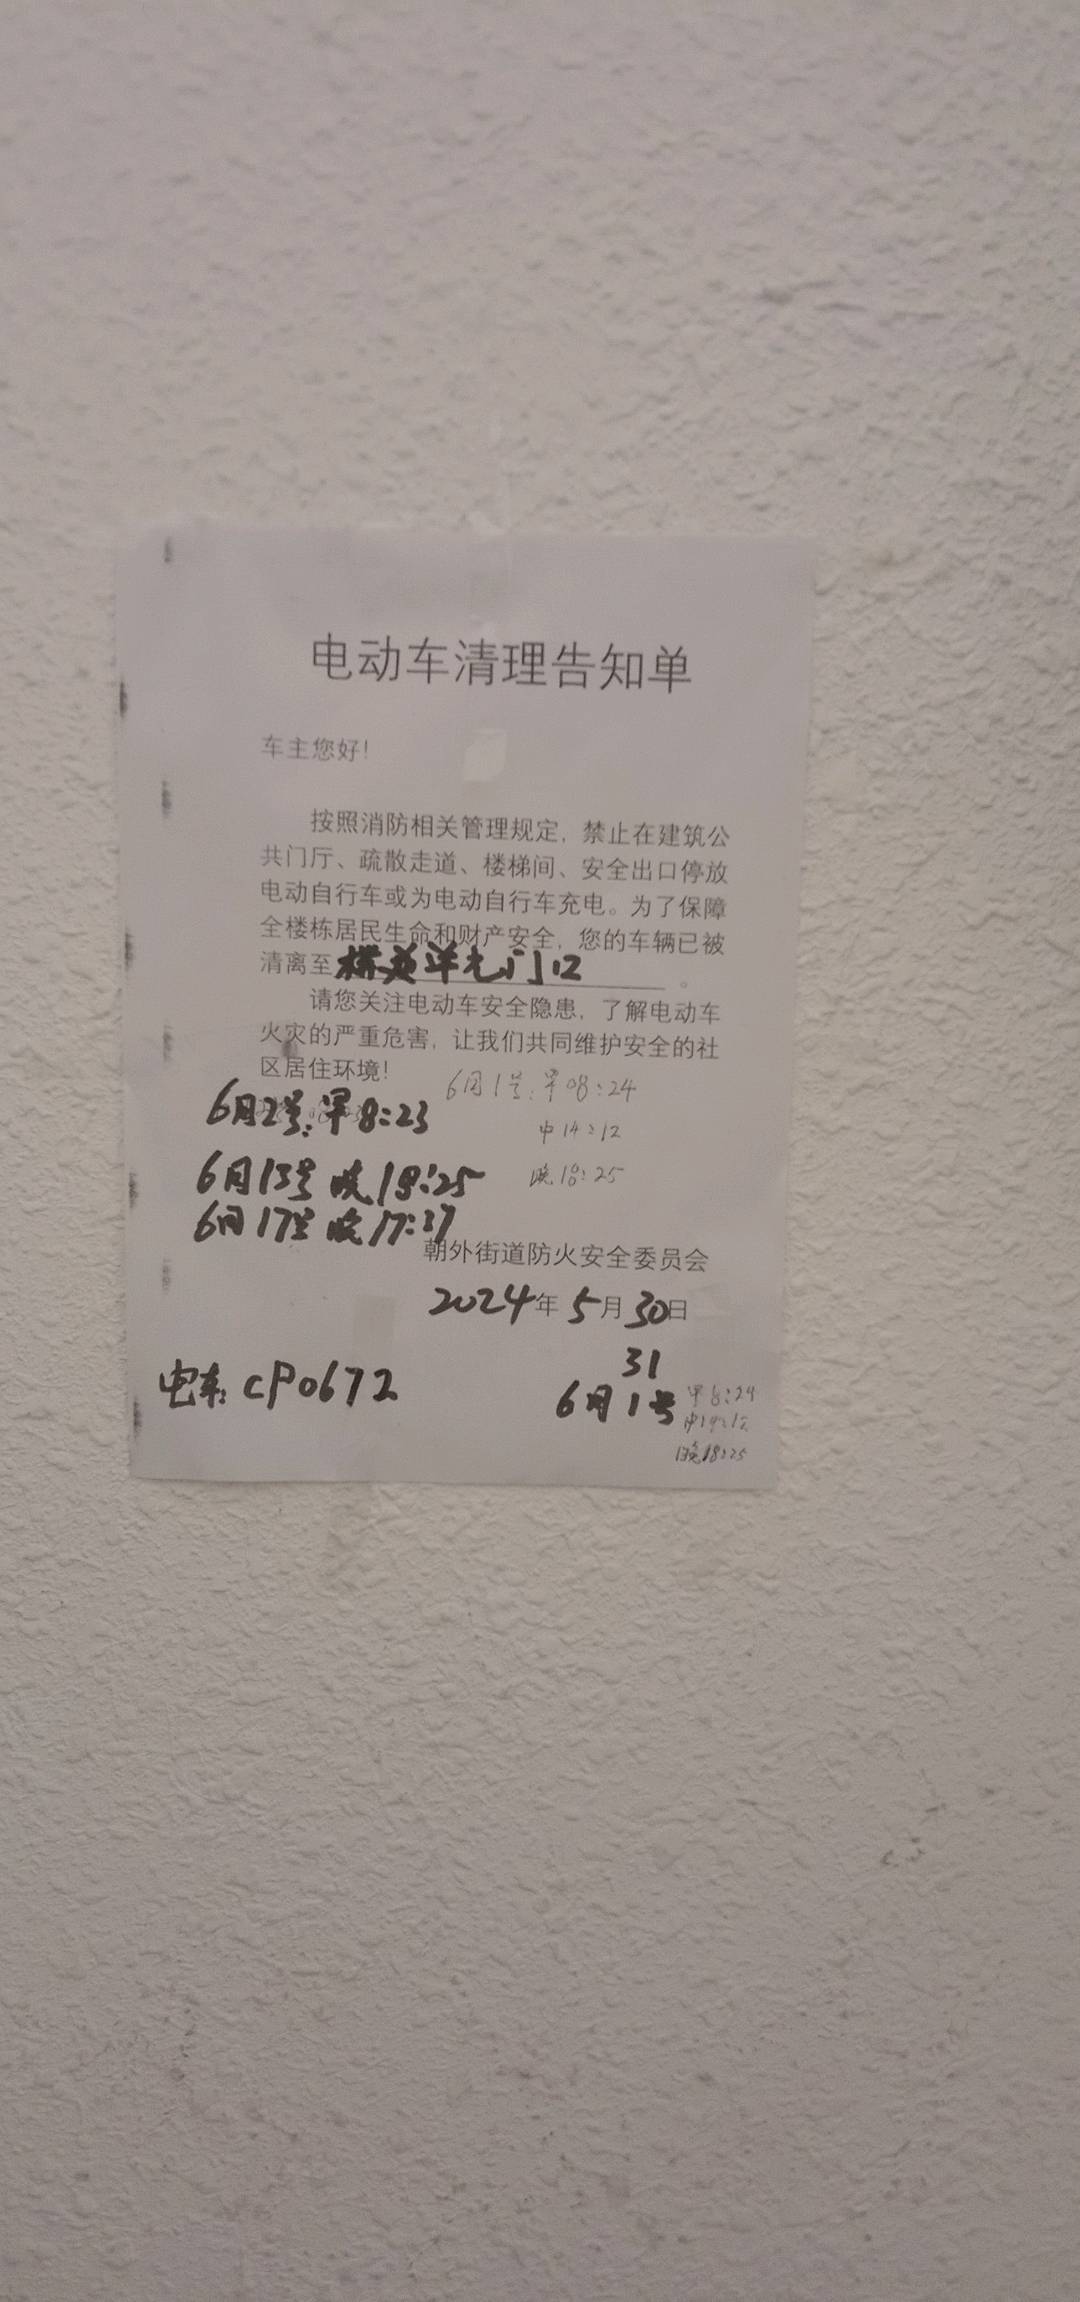 电动车清理告知单
车主您好！
按照消防相关管理规定，禁止在建筑公
共门厅、疏散走道、楼梯间、安全出口停放
电动自行车或为电动自行车充电。为了保障
全楼栋居民生命和财产安全，您的车辆已被
清离至 门口 。
请您关注电动车安全隐患，了解电动车
火灾的严重危害，让我们共同维护安全的社
区居住环境！
6月1号：早08:24
中14:12
晚18:25
6月2号：早8:23
6月13号 晚18:25
6月17号 晚17:37
朝外街道防火安全委员会
2024年5月30日
31
6月1号
早8:24
中14:12
晚18:25
电车：CP0672